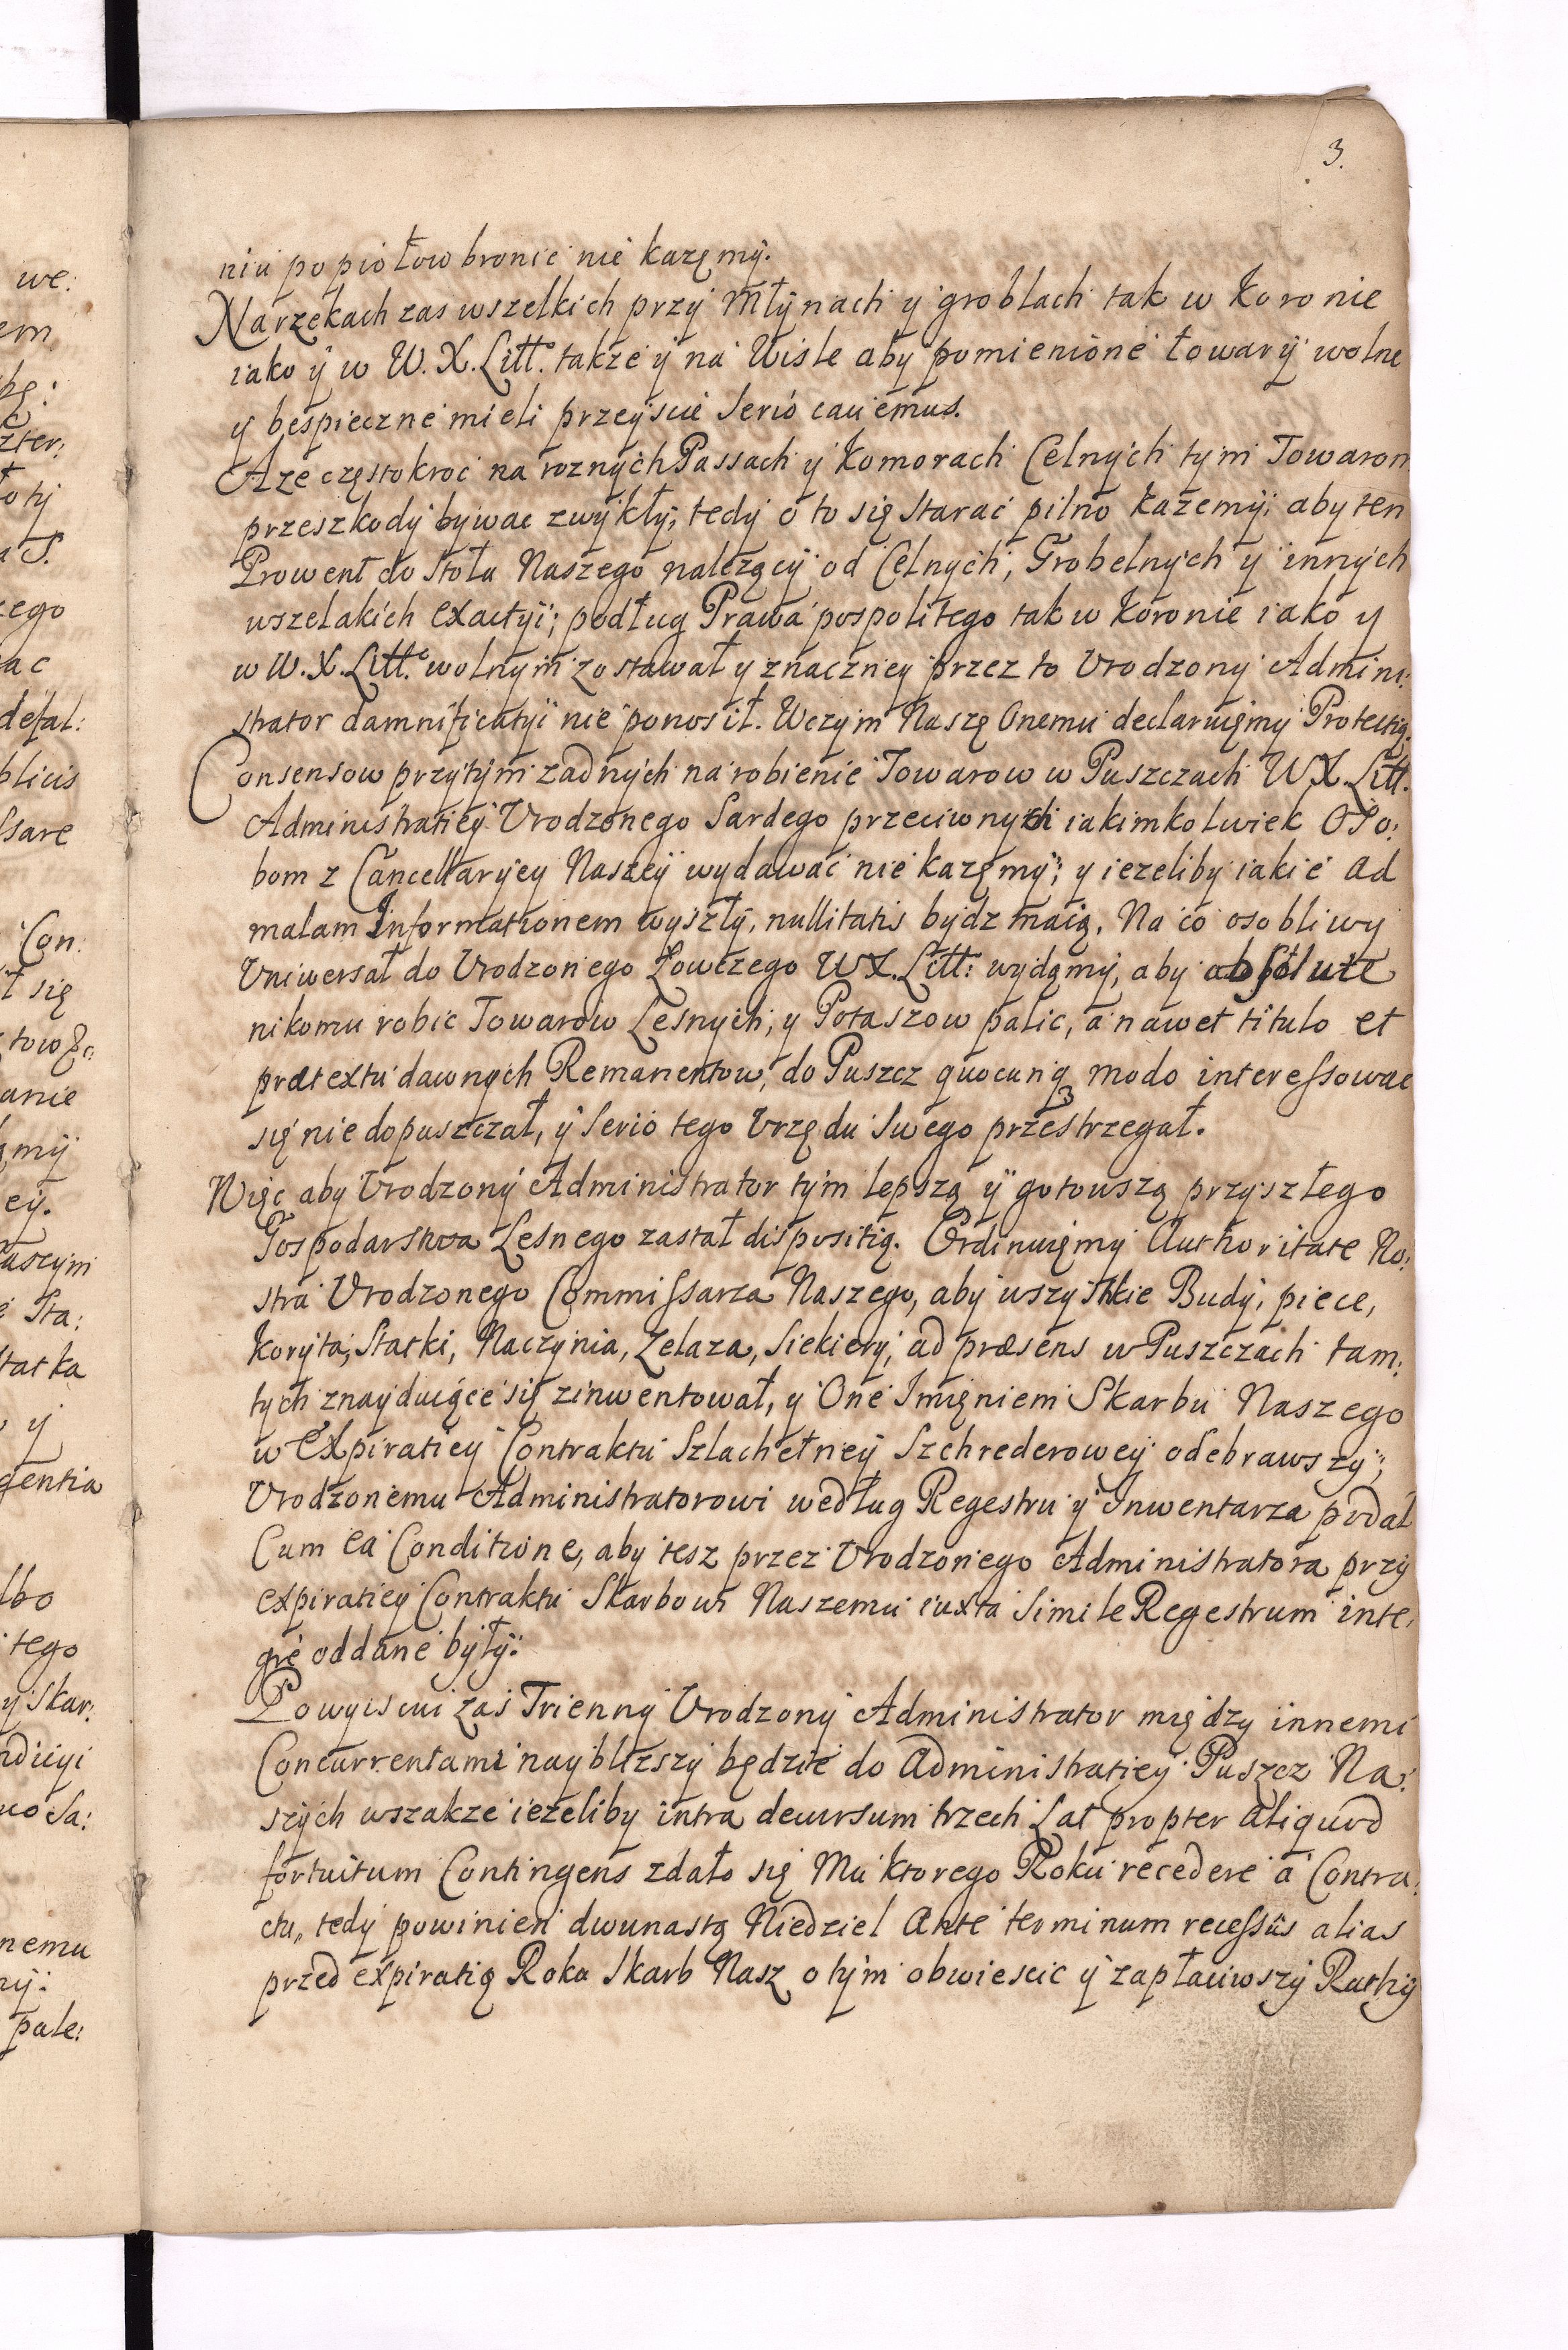 3.
niu popiołow bronic nie kazęmÿ.
Na rzekach zas wszelkich przÿ Młÿnach ÿ groblach tak w Koronie
iako ÿ w W. X. Litt. takze ÿ na Wisle aby pomienione towarÿ wolne
y bespieczne mieli przeÿscie serio cauemus.
A ze częstokroc na roznÿch Passach ÿ Komorach Celnÿch tÿm Towarom
przeszkodÿ bywac zwÿkłÿ, tedÿ o to się starac pilno kazemÿ, aby ten
Prowent do stołu Naszego nalezącÿ od Celnÿch, Grobelnÿch ÿ innÿch
wszelakich exactÿi; podług Prawa pospolitego tak w Koronie iako y
w W. X. Litt. wolnÿm zostawał y znaczneÿ przez to Urodzonÿ Admini:
strator damnificatÿi nie ponosił. Wczÿm Naszę Onemu declaruięmÿ Protectią.
Consensow przÿtÿm zadnÿch na robienie Towarow w Puszczach W X. Litt.
Administratieÿ Urodzonego Sardego przeciwnÿch iakimkolwiek Oso:
bom z Cancellarÿeÿ Naszeÿ wÿdawac nie kazęmÿ; y iezelibÿ iakie ad
malam Informationem wÿszłÿ, nullitatis bÿdz maią. Na co osobliwÿ
Uniwersał do Urodzonego Łowczego W X. Litt: wÿdąmÿ, abÿ absolute
nikomu robic Towarow Lesnÿch, y Potaszow palic, a nawet titulo et
prætextu dawnÿch Remanentow, do Puszcz quocunq modo interessowac
się nie dopuszczał, ÿ serio tego Urzędu swego przestrzegał.
Więc aby Urodzonÿ Administrator tÿm lepszą ÿ gotowszą przÿszłego
Gospodarstwa Lesnego zastał dispositią. Ordinuięmÿ Authoritate No:
stra Urodzonego Commissarza Naszego, abÿ wszÿstkie Budÿ, piece,
Korÿta, Statki, Naczÿnia, Zelaza, Siekierÿ, ad præsens w Puszczach tam:
tÿch znaÿduiące się zinwentował, ÿ One Imięniem Skarbu Naszego
w Expiratieÿ Contraktu Szlachetneÿ Szchrederoweÿ odebrawszÿ,
Urodzonemu Administratorowi według Regestru ÿ Inwentarza podał
Cum ea Conditione, aby tesz przez Urodzonego Administratora przÿ
expiratieÿ Contraktu Skarbowi Naszemu iuxta simile Regestrum inte:
gre oddane bÿłÿ.
Po wÿisciu zas Triennÿ Urodzonÿ Administrator międzÿ innemi
Concurrentami naÿblizszÿ będzie do Administratieÿ Puszcz Na:
szÿch wszakze iezelibÿ intra decursum trzech Lat propter aliquod
fortuitum Contingens zdało się Mu ktorego Roku recedere a Contra:
ctu, tedÿ powinien dwunastą Niedziel Ante terminum recessûs alias
przed expiratią Roku Skarb Nasz o tÿm obwiescic ÿ zapłaciwszÿ Rathÿ